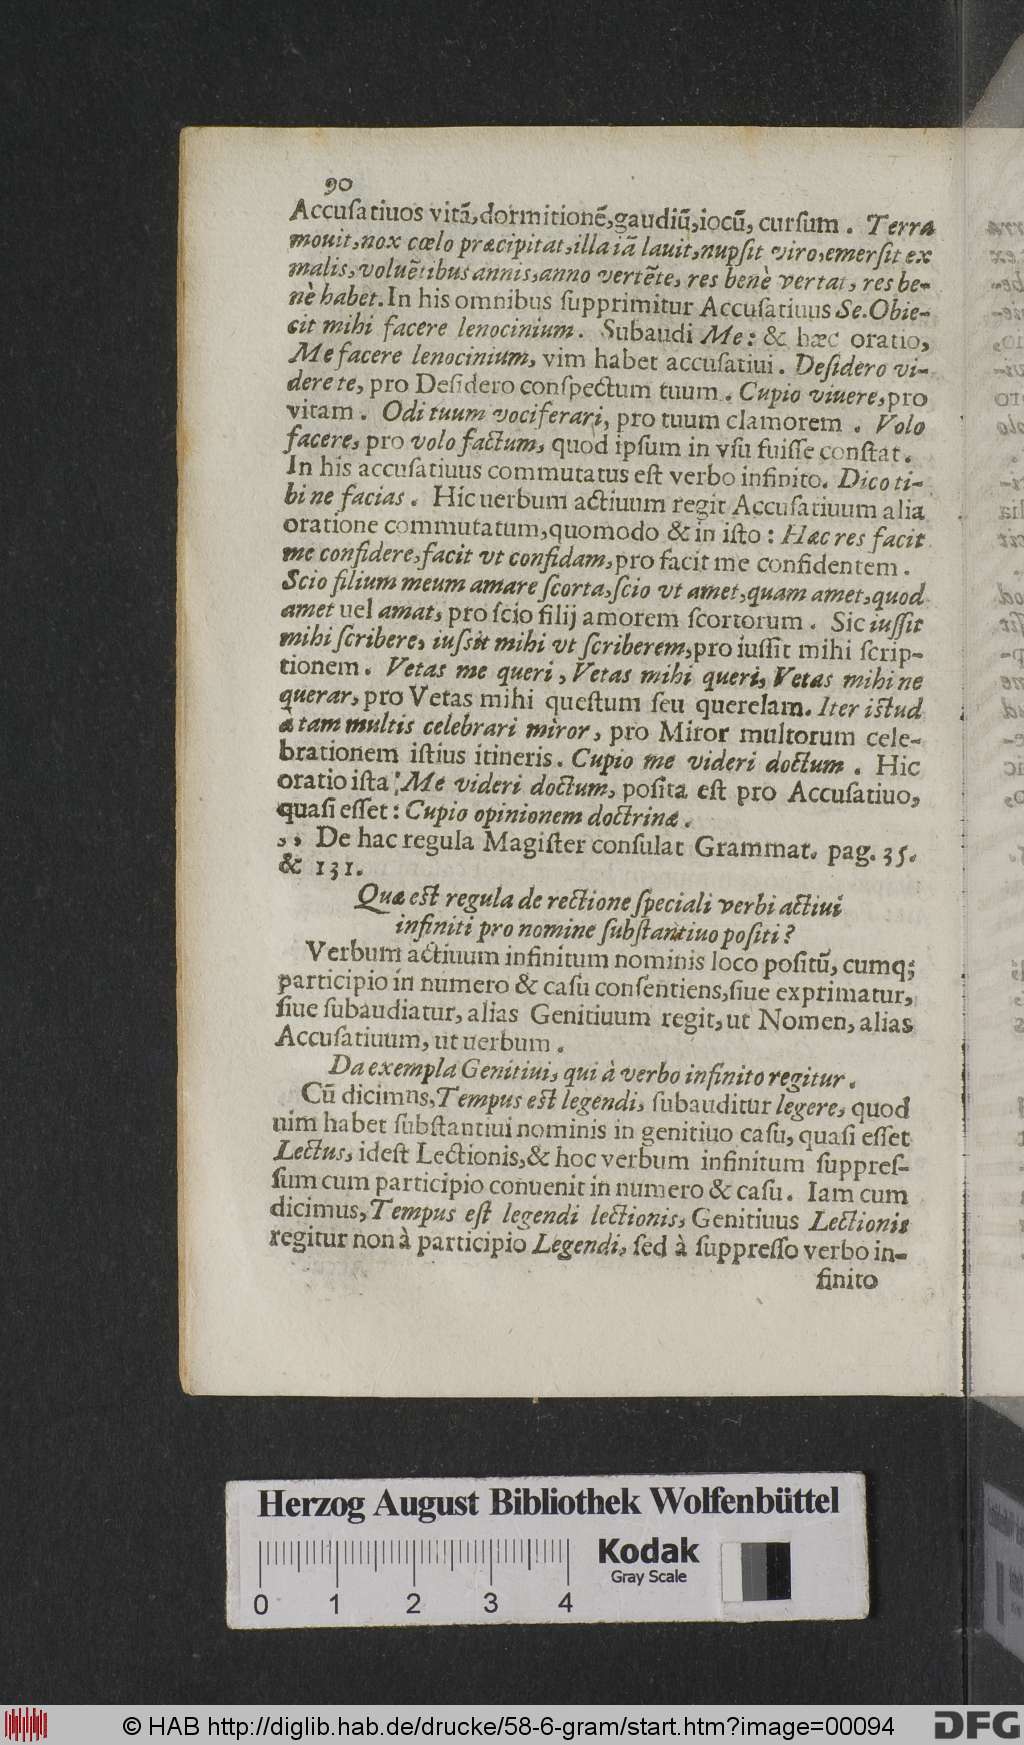 90
Accuſatiuos vitā, dormitionē, gaudiū, iocū, curſum. Terra
mouit, nox cœlo præcipitat, illa iā lauit, nupſit viro, emerſit ex
malis, voluētibus annis, anno vertēte, res benè vertat, res be-
nè habet. In his omnibus ſupprimitur Accuſatiuus Se. Obie-
cit mihi facere lenocinium. Subaudi Me: & hæc oratio,
Me facere lenocinium, vim habet accuſatiui. Deſidero vi-
dere te, pro Deſidero conſpectum tuum. Cupio viuere, pro
vitam. Odi tuum vociferari, pro tuum clamorem. Volo
facere, pro volo factum, quod ipſum in vſu fuiſſe conſtat.
In his accuſatiuus commutatus eſt verbo infinito. Dico ti-
bi ne facias. Hic uerbum actiuum regit Accuſatiuum alia
oratione commutatum, quomodo & in iſto: Hæc res facit
me confidere, facit vt confidam, pro facit me confidentem.
Scio filium meum amare ſcorta, ſcio vt amet, quam amet, quod
amet uel amat, pro ſcio filij amorem ſcortorum. Sic iuſſit
mihi ſcribere, iuſsit mihi vt ſcriberem, pro iuſſit mihi ſcrip-
tionem. Vetas me queri, Vetas mihi queri, Vetas mihi ne
querar, pro Vetas mihi queſtum ſeu querelam. Iter iſtud
à tam multis celebrari miror, pro Miror multorum cele-
brationem iſtius itineris. Cupio me videri doctum. Hic
oratio iſta: Me videri doctum, poſita eſt pro Accuſatiuo,
quaſi eſſet: Cupio opinionem doctrinæ.
,, De hac regula Magiſter conſulat Grammat. pag. 35.
& 131.
Quæ eſt regula de rectione ſpeciali verbi actiui
infiniti pro nomine ſubſtantiuo poſiti?
Verbum actiuum infinitum nominis loco poſitū, cumq;
participio in numero & caſu conſentiens, ſiue exprimatur,
ſiue ſubaudiatur, alias Genitiuum regit, ut Nomen, alias
Accuſatiuum, ut uerbum.
Da exempla Genitiui, qui à verbo infinito regitur.
Cū dicimns, Tempus eſt legendi, ſubauditur legere, quod
uim habet ſubſtantiui nominis in genitiuo caſu, quaſi eſſet
Lectus, ideſt Lectionis, & hoc verbum infinitum ſuppreſ-
ſum cum participio conuenit in numero & caſu. Iam cum
dicimus, Tempus eſt legendi lectionis, Genitiuus Lectionis
regitur non à participio Legendi, ſed à ſuppreſſo verbo in-
finito
Herzog August Bibliothek Wolfenbüttel
Kodak
Gray Scale
0 1 2 3 4
© HAB http://diglib.hab.de/drucke/58-6-gram/start.htm?image=00094
DFG